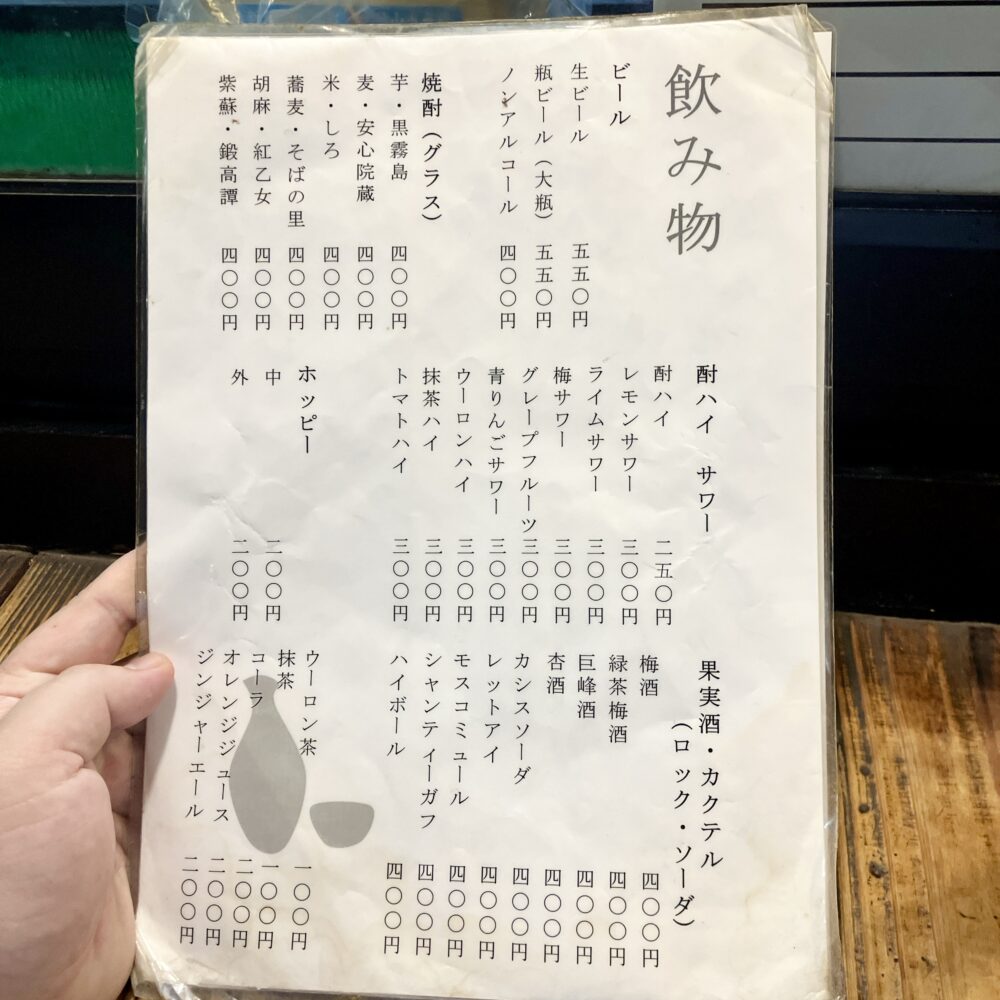 飲み物
ビール
生ビール 五五〇円
瓶ビール（大瓶） 五五〇円
ノンアルコール 四〇〇円
焼酎（グラス）
芋・黒霧島 四〇〇円
麦・安心院蔵 四〇〇円
米・しろ 四〇〇円
蕎麦・そばの里 四〇〇円
胡麻・紅乙女 四〇〇円
紫蘇・鍛高譚 四〇〇円
酎ハイ サワー
酎ハイ 二五〇円
レモンサワー 三〇〇円
ライムサワー 三〇〇円
梅サワー 三〇〇円
グレープフルーツ 三〇〇円
青りんごサワー 三〇〇円
ウーロンハイ 三〇〇円
抹茶ハイ 三〇〇円
トマトハイ 三〇〇円
ホッピー
中 二〇〇円
外 二〇〇円
果実酒・カクテル
（ロック・ソーダ）
梅酒 四〇〇円
緑茶梅酒 四〇〇円
巨峰酒 四〇〇円
杏酒 四〇〇円
カシスソーダ 四〇〇円
レットアイ 四〇〇円
モスコミュール 四〇〇円
シャンティーガフ 四〇〇円
ハイボール 四〇〇円
ウーロン茶 一〇〇円
抹茶 一〇〇円
コーラ 二〇〇円
オレンジジュース 二〇〇円
ジンジャーエール 二〇〇円